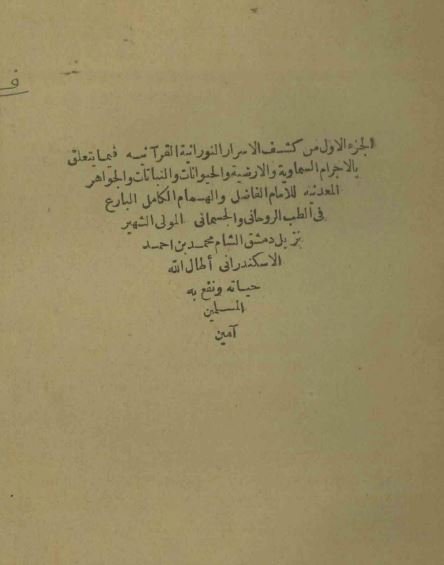 الجزء الاول من كشف الاسرار النورانية القرآنيه فيما يتعلق
بالاجرام السماوية والارضية والحيوانات والنباتات والجواهر
المعدنيه للامام الفاضل والهمام الكامل البارع
فى الطب الروحانى والجسمانى المولى الشهير
نزيل دمشق الشام محمد بن احمد
الاسكندرانى أطال الله
حياته ونفع به
المسلمين
آمين